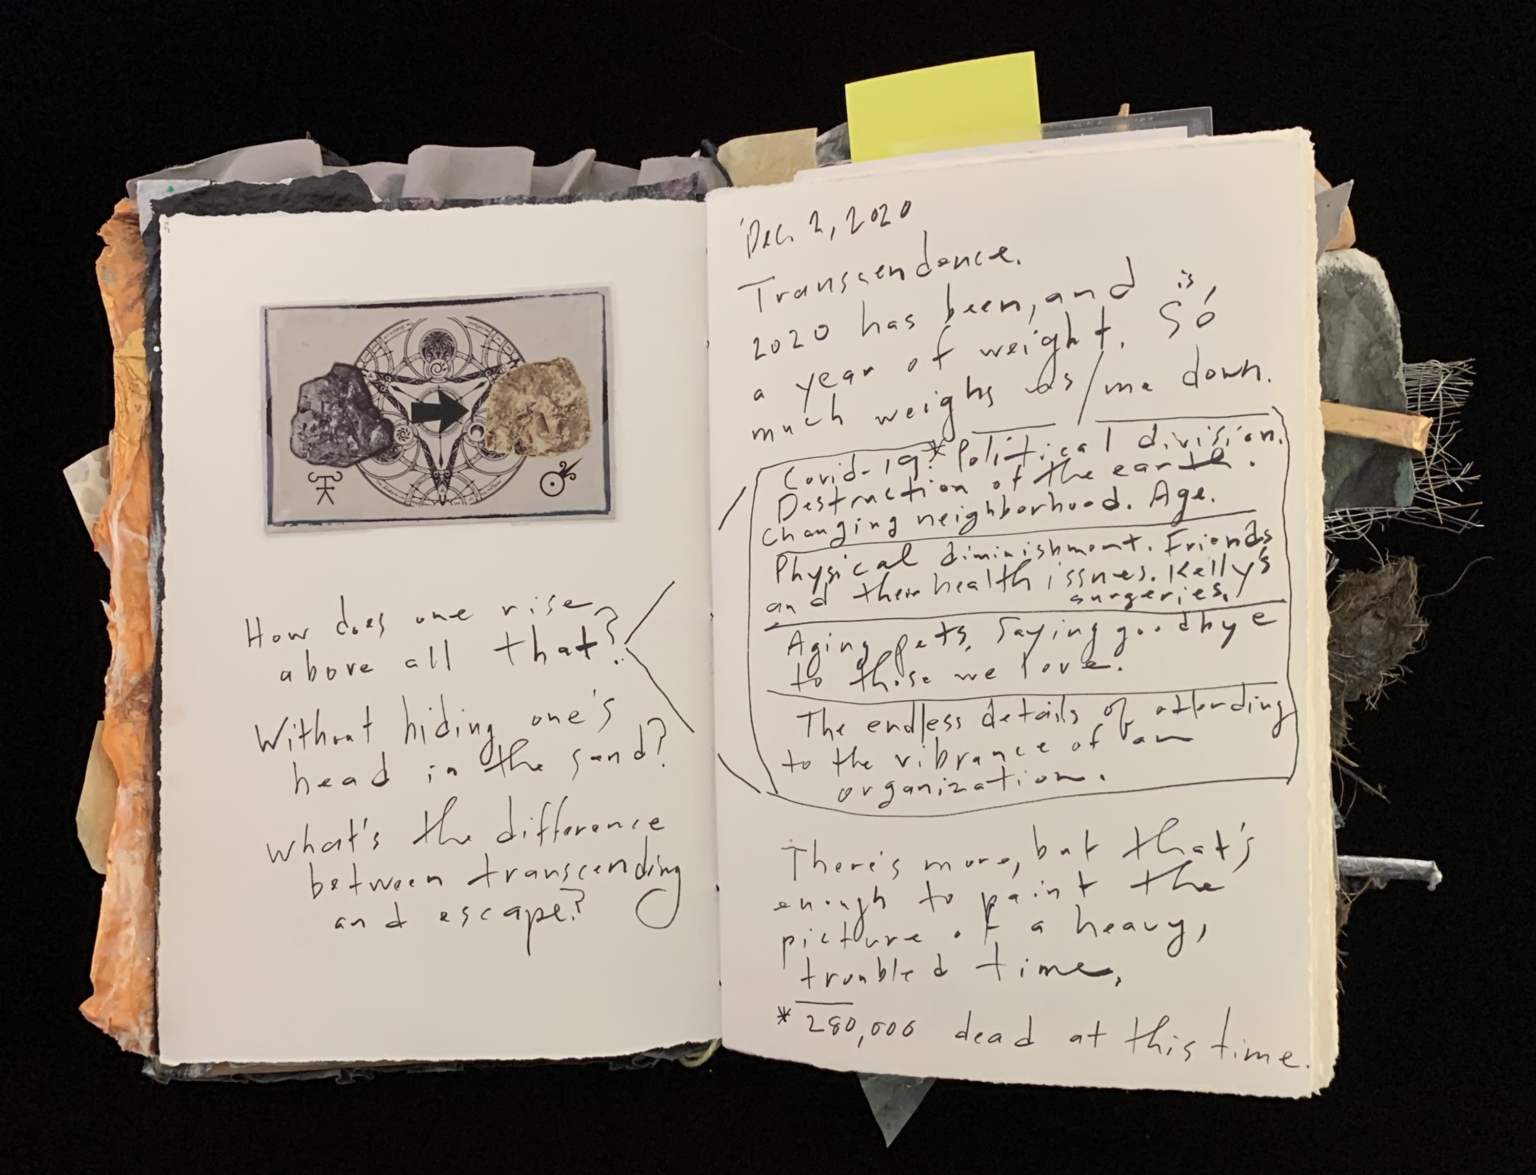 How does one rise
above all that?
Without hiding one's
head in the sand?
What's the difference
between transcending
and escape?
Dec. 2, 2020
Transcendence.
2020 has been, and is,
a year of weight. So
much weighs us/me down.
Covid-19.* Political division.
Destruction of the earth.
Changing neighborhood. Age.
Physical diminishment. Friends
and their health issues. Kelly's
surgeries.
Aging pets. Saying goodbye
to those we love.
The endless details of attending
to the vibrance of an
organization.
There's more, but that's
enough to paint the
picture of a heavy,
troubled time.
* 280,000 dead at this time.